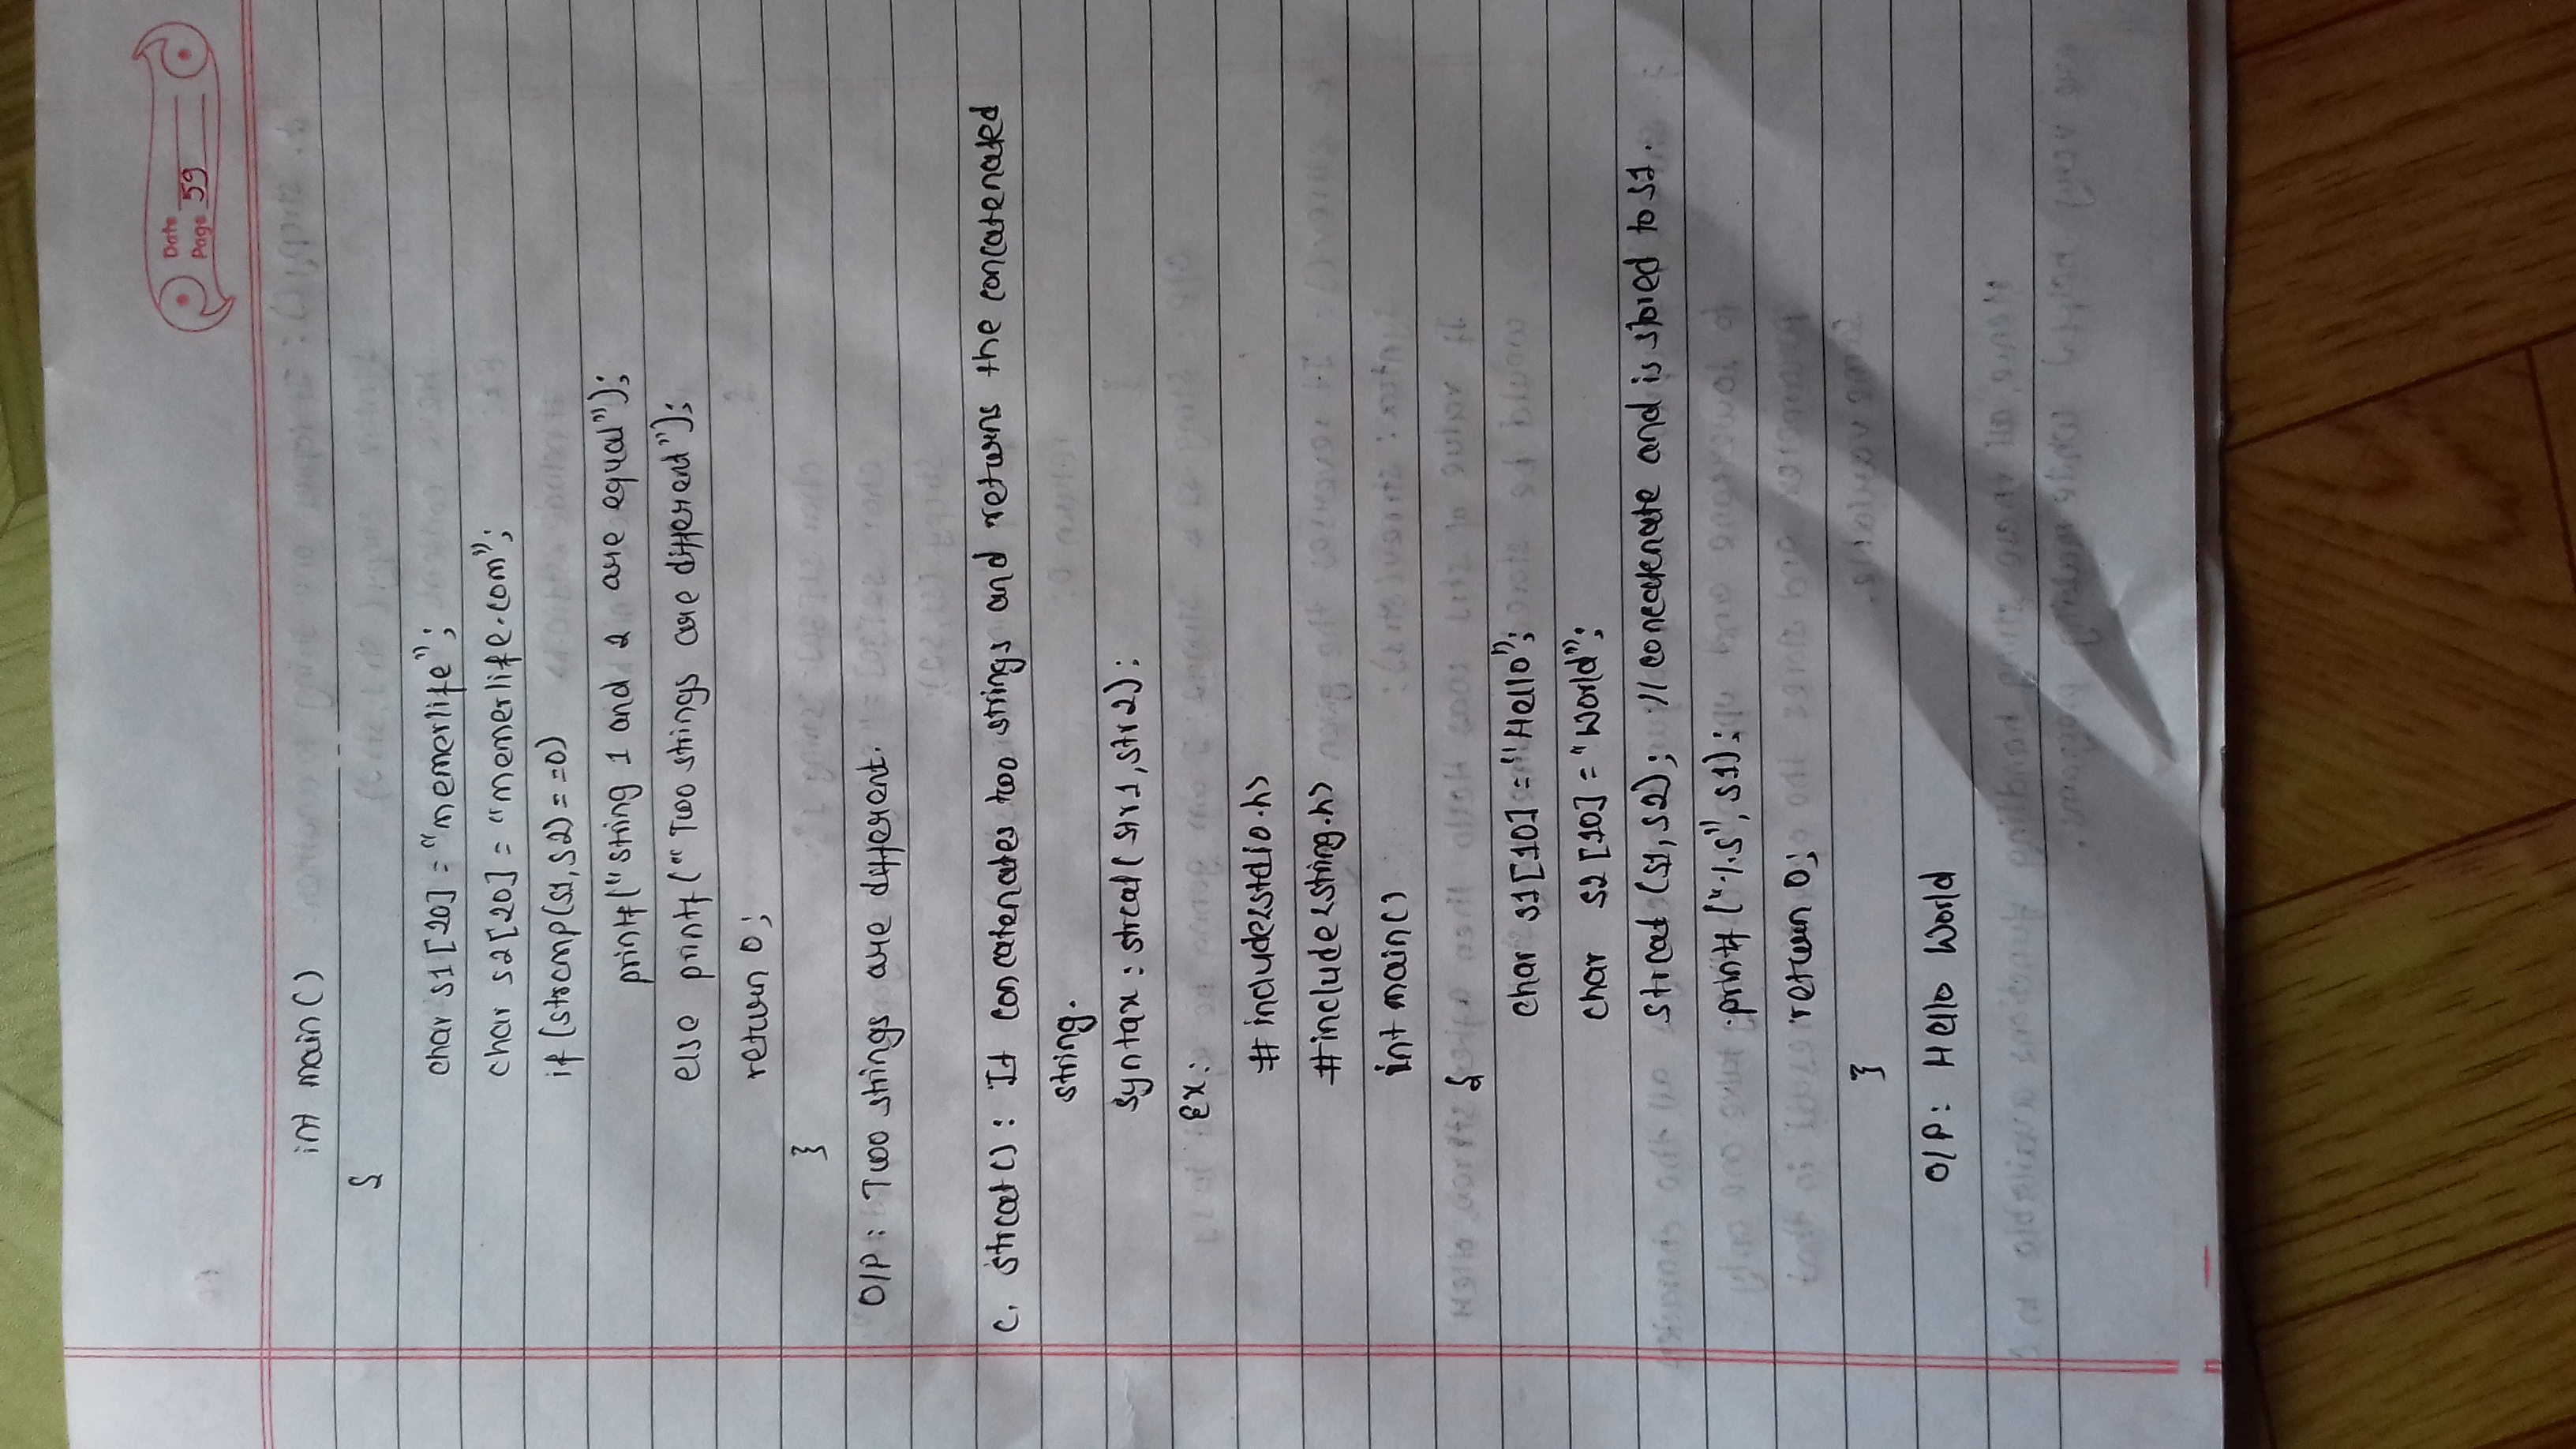 Date
Page 59
int main()
{
char s1[20] = "memerlife";
char s2[20] = "memerlife.com";
if (strcmp(s1, s2) = =0)
printf("string 1 and 2 are equal");
else printf("Two strings are different");
return 0;
}
O/P: Two strings are different.
c. strcat(): It concatenates two strings and returns the concatenated
string.
syntax: strcat(str1, str2);
Ex:
#include<stdio.h>
#include<string.h>
int main()
{
char s1[10] = "Hello";
char s2[10] = "World";
strcat (s1, s2); // concatenate and is stored to s1.
printf ("%s", s1);
return 0;
}
O/P: Hello World